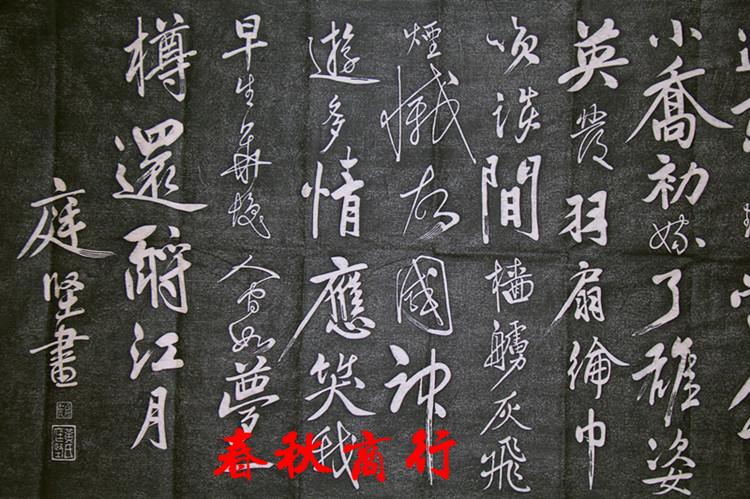 小喬初嫁了雄姿
英發羽扇綸巾
咲談間檣艣灰飛
煙滅故國神
遊多情應笑我
早生華髮人間如夢
樽還酹江月
庭堅畫
春秋商行